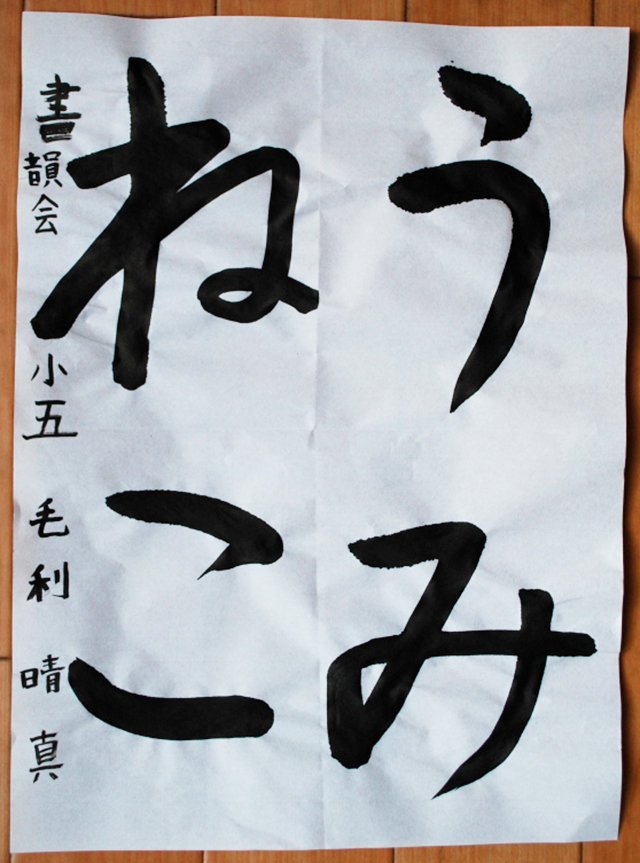 うみ
ねこ
書韻会 小五 毛利 晴真